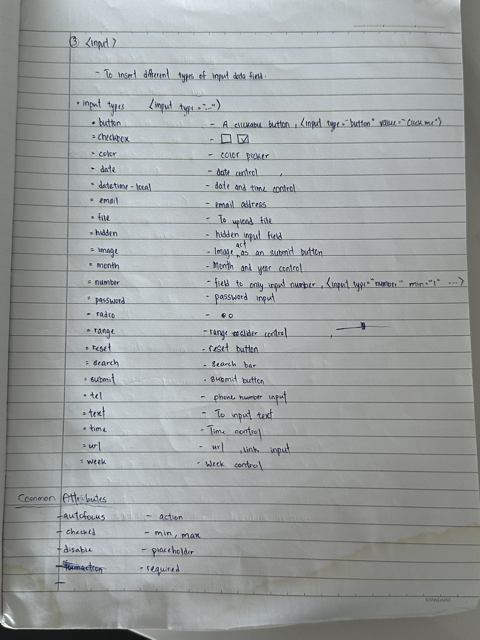 ③ <input>
- To insert different types of input data field.
• input types <input type="...">
• button - A clickable button, <input type="button" value="Click me">
• checkbox -
• color - color picker
• date - date control
• datetime-local - date and time control
• email - email address
• file - To upload file
• hidden - hidden input field
• image - Image act as an submit button
• month - Month and year control
• number - field to only input number, <input type="number" min="1" ...>
• password - password input
• radio -
• range - range slider control
• reset - reset button
• search - search bar
• submit - submit button
• tel - phone number input
• text - To input text
• time - Time control
• url - url, link input
• week - week control
Common Attributes
- autofocus - action
- checked - min, max
- disable - placeholder
- - required
-